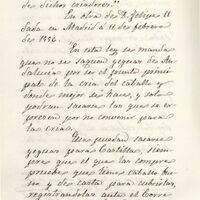 de dichos criadores."
En otra de D. Felipe II
dada en Madrid à 11 de febrero
de 1556.
En esta ley se manda
que no se saquen yeguas de An-
dalucia por ser el punto princi-
pal de la cria del caballo y
donde mejor se hace, y solo
podran sacarse las que se ex-
presen por no convenir para
la cria.
Que puedan sacarse
yeguas para Castilla, siem-
pre que el que las compre
pruebe que tiene caballo bue-
no y de casta para cubrirlas,
registrandolas ante el Corre-